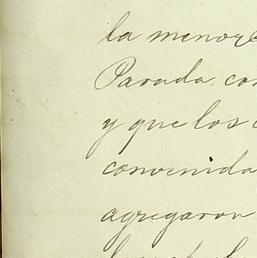 la menor
Parada, co
y que los
convenida
agregaron